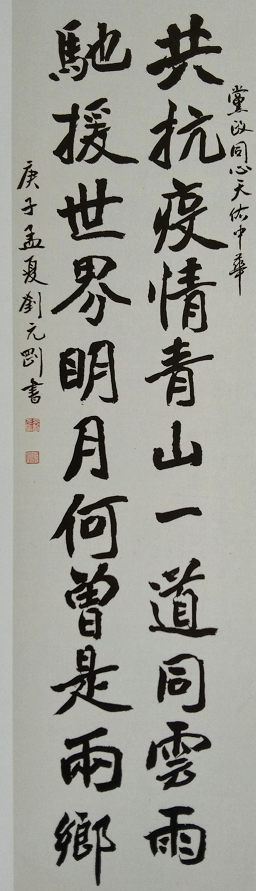 黨政同心天佑中華
共抗疫情青山一道同雲雨
馳援世界明月何曾是兩鄉
庚子孟夏劉元剛書